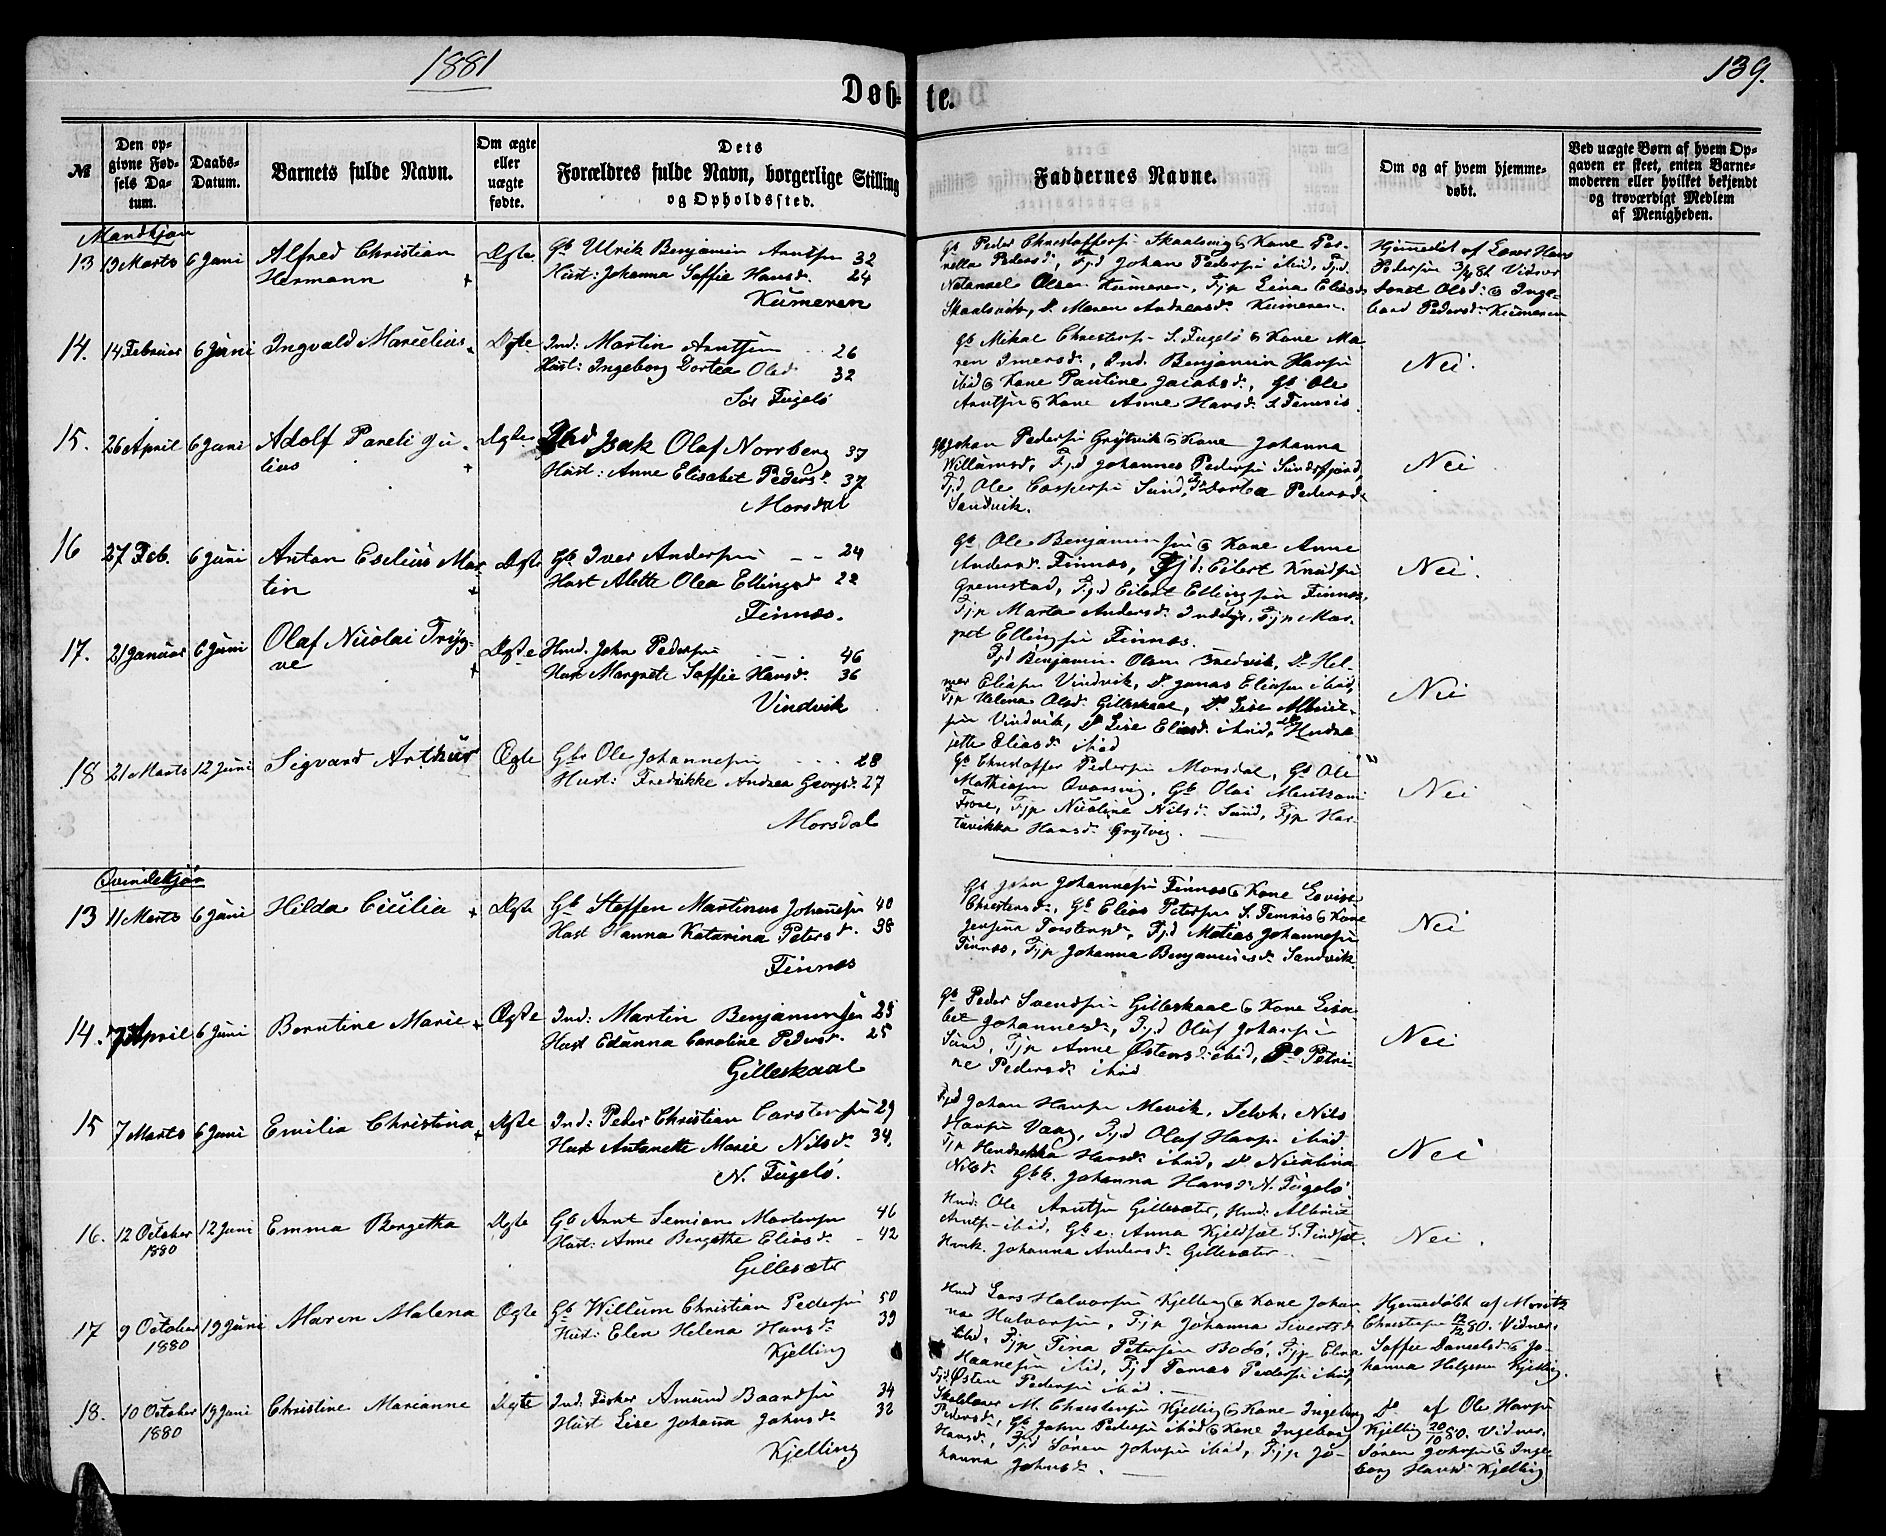 1881
139.
Døb-
te.
№
Den op-
givne Fød-
sels Da-
tum.
Daabs-
Datum.
Barnets fulde Navn.
Om ægte
eller
uægte
fødte.
Dets
Forældres fulde Navn, borgerlige Stilling
og Opholdssted.
Faddernes Navne.
Om og af hvem hjemme-
døbt.
Ved uægte Børn af hvem Op-
gaven er skeet, enten Barne-
moderen eller hvilket bekjendt
og troværdigt Medlem
af Menigheden.
Mandkjøn
13 13 Marts 6 Juni Alfred Christian
Hermann
Ægte
Gb Ulrik Benjamin Arntsen 32
Hust: Johanna Soffie Hansd. 24
Kumeren
Gb Peder Christoffersen Skaalsvig & Kone Per-
nella Pedersd., Fjd Johan Pedersen ibid, Fjd.
Natanael Olsen Kumeren, Fjp Lina Eliasd
Skaalsvik, Do Maren Andreasd. Kumeren
Hjemmedøbt af Lars Hans
Pedersen 3/4 81. Vidner
Olsd: & Inge-
borg Pedersd. Kumeren
14. 14 Februar 6 Juni Ingvald Marcelius
Ægte
Ind: Martin Arntsen 26
Hust: Ingeborg Dortea Olsd. 32
Sør Fugelø
Gb Mikal Christensen S. Fugelø & Kone Ma-
ren Imersd., Ind. Benjamin Hansen
ibid & Kone Pauline Jacobsd., Gb Ole
Arntsen & Kone Anne Hansd. S. Femris
Nei.
15. 26 April 6 Juni Adolf Pareli Ju-
lius
Ægte
Isak Olaf Norrberg 37
Hust: Anne Elisabet Pedersd. 37
Morsdal
Gb Johan Pedersen Grytvik & Kone Johanna
Willumsd., Fjd Johannes Pedersen Sundsfjord,
Fjd Ole Caspersen Sund, Fjp Dortea Pedersd.
Sandvik.
Nei
16 27 Feb. 6 Juni Anton Eselius Mar-
tin
Ægte
Gb Iver Andersen 24
Hust Alette Olea Ellingsd 22
Finnes.
Gb Ole Benjaminsen & Kone Anne
Andersd. Finnes, Fjd: Eilert Knudsen
Grimstad, Fjd Eilert Ellingsen Finnes,
Fjp Marta Andersd. Inddyr, Fjp Mar-
gret Ellingsen Finnes.
Nei.
17. 21 Januar 6 Juni Olaf Nicolai Tryg-
ve
Ægte
Hmd. John Pedersen 46
Hust Margrete Soffie Hansd. 36
Vindvik
Fjd Benjamin Olsen Bredvik, Do Hel-
mer Eliasen Vindvik, Do Jonas Eliasen ibid,
Fjp Helena Olsd. Gilleskaal, Do Lise Albrigt-
sen Vindvik, Do Lise Eliasd. ibid, Do Hendri-
jette Eliasd. ibid
Nei
18 21 Marts 12 Juni Sigvard Arthur
Ægte
Gbr Ole Johannesen 28
Hust: Fredrikke Andrea Georgsd. 27
Morsdal
Gb Christoffer Pedersen Morsdal, Gb Ole
Mathiasen Qvarsvig, Gb Olai Mentsani
Frone, Fjp Nicoline Nilsd. Sund, Fjp Har-
tavikka Hansd. Grytvig.
Nei
Qvindekjøn
13 11 Marts 6 Juni Hilda Cicilia
Ægte
Gb Steffen Martinus Johansen 40
Hust Hanna Katarina Petersd. 38
Finnes
Gb John Johannesen Finnes & Kone Lovise
Christensd., Gb Elias Petersen S. Femris & Kone
Jensina Torstensd., Fjd Matias Johannesen
Finnes, Fjp Johanna Benjaminsd. Sandvik.
Nei
14. 7 April 6 Juni Berntine Marie
Ægte
Ind: Martin Benjaminsen 23
Hust Edianna Caroline Pedersd. 25
Gilleskaal
Gb Peder Svendsen Gilleskaal & Kone Lisa-
bet Johannesd., Fjd Oluf Johansen
Sund, Fjp Anne Østensd. ibid, Do Petri-
ne Pedersd. ibid
Nei
15 7 Marts 6 Juni Emilia Christina
Ægte
Ind: Peder Christian Carstensen 29
Hust Antonette Marie Nilsd. 34.
N. Fugelø.
Fjd Johan Hansen Mevik, Selvh. Nils
Hansen Vaag, Fjd Olaf Hansen ibid
Fjp Hendrekka Hansd. ibid, Do Nicolina
Nilsd. Gbk. Johanna Hansd. N. Fugelø
Nei
16. 12 October 12 Juni Emma Bergetha
1880
Ægte
Gb Arnt Semian Mortensen 46
Hust: Anne Bergethe Eliasd. 42
Gillesæter
Hmd: Ole Arntsen Gillesæter, Hmd: Albrict
Arntsen ibid, Gbe. Anna Kjeldsæt S. Findsæt.
Hmk. Johanna Andersd. Gillesæter
Nei.
17 9 October 19 Juni Maren Malena
1880
Ægte
Gb Willum Christian Pedersen 50
Hust: Elen Helena Hansd. 39
Kjelling
Hmd Lars Halvorsen Kjelling & Kone Johan-
na Halvorsen, Fjp Johanna Sivertsd
ibid, Fjp Tina Petersen Bodø, Fjp Elina
Haanesen ibid, Fjd Tomas Pedersen ibid,
Fjd. Østen Pedersen ibid.
Hjemmedøbt af Moritz
Christofsen 12/12 80. Vidner.
Soffie Danielsd. & Jo-
hanna Helgesen Kjelling.
18. 10 October 19 Juni Christine Marianne
1880
Ægte
Ind. Fisker Amund Baardsen 34
Hust Lise Johanna Johnsd. 32
Kjelling
Skolelærer M. Christensen Kjelling & Kone Ingeborg
Pedersd., Gb John Pedersen ibid & Kone Ingeborg
Hansd., Fjd Søren Johnsen ibid, Fjp Jo-
hanna Johnsd.
Do af Ole Hansen
Kjelling 20/10 80. Vidner.
Søren Johnsen & Inge-
borg Hansd Kjelling